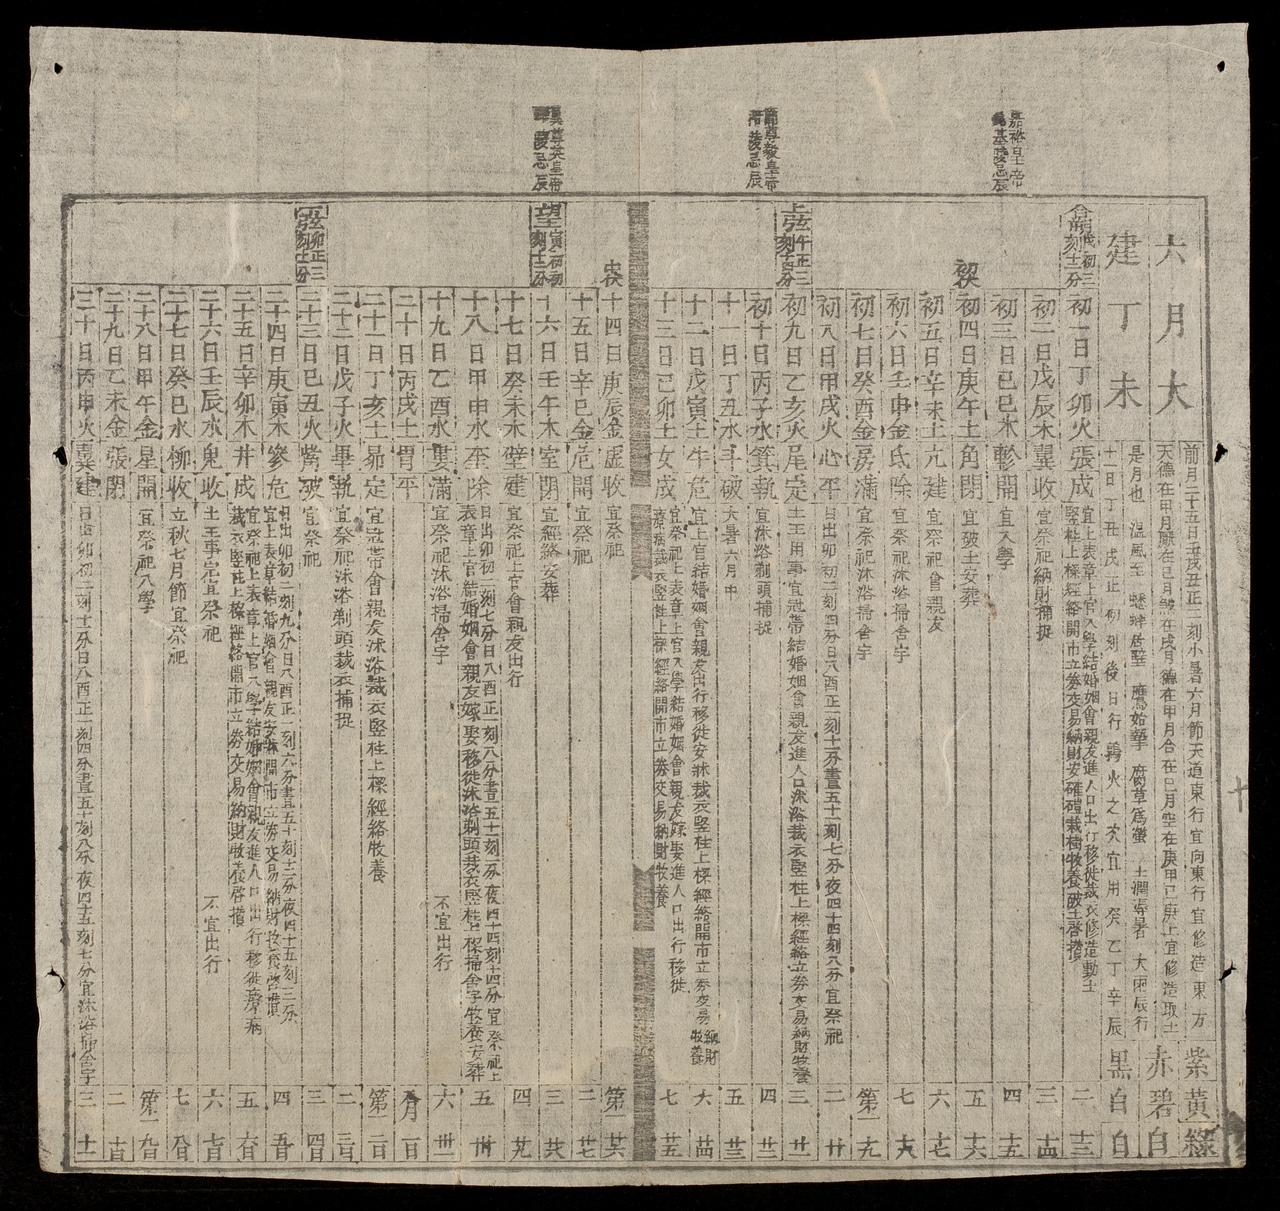 六月大
建丁未
前月二十五日壬戌丑正二刻小暑六月節天道東行宜向東行宜修造東方
天德在甲月厭在巳月煞在戌月德在甲月合在己月空在庚甲己庚上宜修造取土
是月也 溫風至 蟋蟀居壁 鷹始摯 腐草為螢 土潤溽暑 大雨辰行
十一日丁丑戌正初刻後日行鶉火之次宜用癸乙丁辛辰
紫黃綠
赤碧白
黑白白
嘉裕皇帝
基陵忌辰
簡尊毅皇帝
陵忌辰
尊英皇帝
陵忌辰
合朔戌初三刻十二分
初一日丁卯火張成
宜上表章上官入學結婚姻會親友進人口出行移徙裁衣修造動土
豎柱上樑經絡開市立券交易納財安碓磑栽種牧養破土啓攢
二 十三
初二日戊辰木翼收 宜祭祀納財捕捉 三 十四
初三日己巳木軫開 宜入學 四 十五
初四日庚午土角閉 宜破土安葬 五 十六
初五日辛未土亢建 宜祭祀會親友 六 十七
初六日壬申金氐除 宜祭祀沐浴掃舍宇 七 十八
初七日癸酉金房滿 宜祭祀沐浴掃舍宇 第一 十九
初八日甲戌火心平 日出卯初二刻四分日入酉正一刻十一分晝五十一刻七分夜四十四刻八分宜祭祀 二 廿
上弦午正三刻
初九日乙亥火尾定 土王用事宜冠帶結婚姻會親友進人口沐浴裁衣豎柱上樑經絡立券交易納財牧養 三 廿一
初十日丙子水箕執 宜沐浴剃頭捕捉 四 廿二
十一日丁丑水斗破 大暑六月中 五 廿三
十二日戊寅土牛危 宜上官結婚姻會親友出行移徙安牀裁衣豎柱上樑經絡開市立券交易納財牧養 六 廿四
十三日己卯土女成
宜祭祀上表章上官入學結婚姻會親友嫁娶進人口出行移徙
療病裁衣豎柱上樑經絡開市立券交易納財牧養
七 廿五
十四日庚辰金虛收 宜祭祀 第一 廿六
十五日辛巳金危開 宜祭祀 二 廿七
望寅初初刻十二分
十六日壬午木室閉 宜經絡安葬 三 廿八
十七日癸未木壁建 宜祭祀上官會親友出行 四 廿九
十八日甲申水奎除
日出卯初二刻七分日入酉正一刻八分晝五十一刻一分夜四十四刻十四分宜祭祀上
表章上官結婚姻會親友嫁娶移徙沐浴剃頭裁衣豎柱上樑掃舍宇牧養安葬
五 卅
十九日乙酉水婁滿 宜祭祀沐浴掃舍宇 不宜出行 六 卅一
二十日丙戌土胃平 八月一日
二十一日丁亥土昴定 宜冠帶會親友沐浴裁衣豎柱上樑經絡牧養 第一 二日
二十二日戊子火畢執 宜祭祀沐浴剃頭裁衣捕捉 二 三日
下弦卯正三刻十三分
二十三日己丑火觜破 宜祭祀 三 四日
二十四日庚寅木參危
日出卯初二刻九分日入酉正一刻六分晝五十刻十二分夜四十五刻三分
宜上表章結婚姻會親友安牀開市立券交易納財牧養啓攢
四 五日
二十五日辛卯木井成
宜祭祀上表章上官入學結婚姻會親友進人口出行移徙療病
裁衣豎柱上樑經絡開市立券交易納財牧養啓攢
五 六日
二十六日壬辰水鬼收 土王事完宜祭祀 不宜出行 六 七日
二十七日癸巳水柳收 立秋七月節宜祭祀 七 八日
二十八日甲午金星開 宜祭祀入學 第一 九日
二十九日乙未金張閉 二 十日
三十日丙申火翼建 日出卯初二刻十一分日入酉正一刻四分晝五十刻八分夜四十五刻七分宜沐浴掃舍宇 三 十一